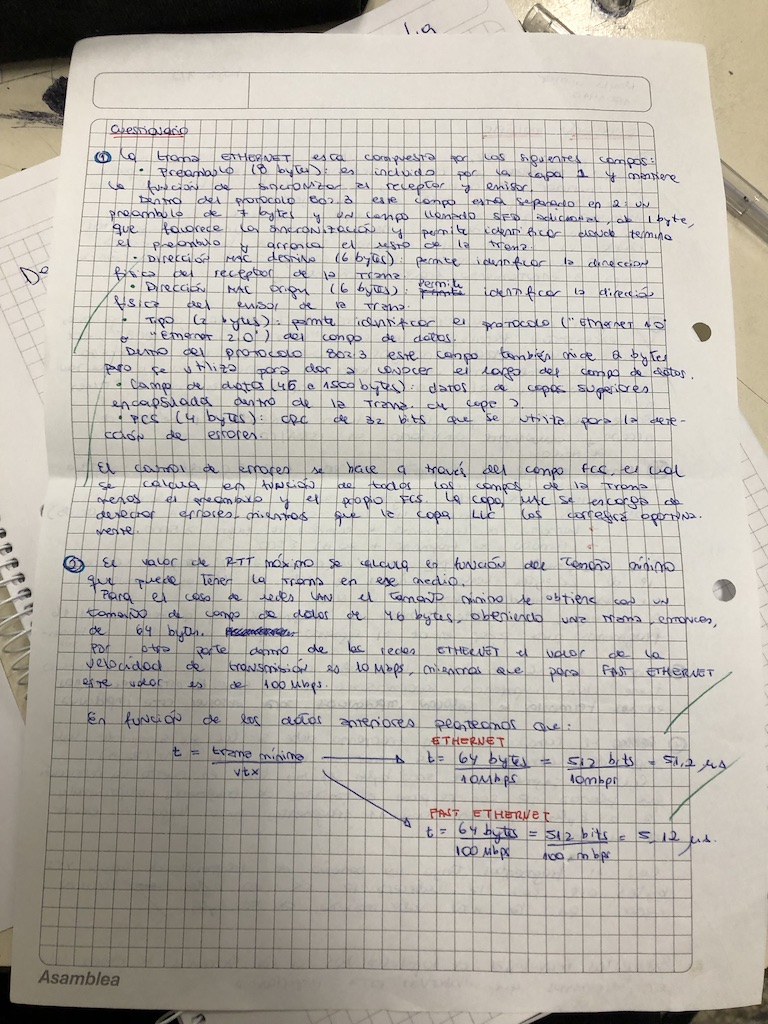 1.a
Cuestionario
① La trama ETHERNET esta compuesta por los siguientes campos:
• Preambulo (8 bytes): es incluido por la capa 1 y mantiene
la función de sincronizar al receptor y emisor.
Dentro del protocolo 802.3 este campo está separado en 2: un
preambulo de 7 bytes y un campo llamado SFD adicional, de 1 byte,
que favorece la sincronización y permite identificar donde termina
el preambulo y arranca el resto de la trama.
• Dirección MAC destino (6 bytes): permite identificar la direccion
física del receptor de la trama.
• Dirección MAC origen (6 bytes): permite identificar la direción
física del emisor de la trama.
• Tipo (2 bytes): permite identificar el protocolo ("Ethernet 1.0"
o "Ethernet 2.0") del campo de datos.
Dentro del protocolo 802.3 este campo también mide 2 bytes
pero se utiliza para dar a conocer el largo del campo de datos.
• Campo de datos (46 a 1500 bytes): datos de capas superiores
encapsulada dentro de la trama de capa 2
• FCS (4 bytes): CRC de 32 bits que se utiliza para la dete-
cción de errores.
El control de errores se hace a través del campo FCS, el cual
se calcula en función de todos los campos de la trama
menos el preambulo y el propio FCS. La capa MAC se encarga de
detectar errores, mientras que la capa LLC los corregirá oportuna-
mente.
El valor de RTT máximo se calcula en función del tamaño mínimo
que puede tener la trama en ese medio.
Para el caso de redes LAN el tamaño mínimo se obtiene con un
tamaño de campo de datos de 46 bytes, obteniendo una trama, entonces,
de 64 bytes.
Por otra parte dentro de las redes ETHERNET el valor de la
velocidad de transmisión es 10 Mbps, mientras que para FAST ETHERNET
este valor es de 100 Mbps.
En función de los datos anteriores planteamos que:
ETHERNET
t = trama mínima / vtx t = 64 bytes / 10 Mbps = 512 bits / 10 mbps = 51,2 μs
FAST ETHERNET
t = 64 bytes / 100 Mbps = 512 bits / 100 mbps = 5,12 μs.
Asamblea